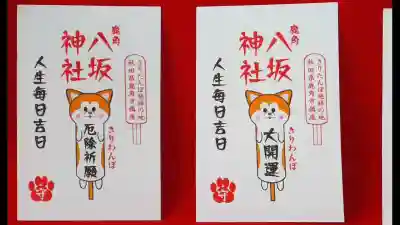 鹿角
八坂
神社
きりたんぽ発祥の地
秋田県鹿角市鎮座
人生毎日吉日
きりわんぽ
厄除祈願
守
鹿角
八坂
神社
きりたんぽ発祥の地
秋田県鹿角市鎮座
人生毎日吉日
きりわんぽ
大開運
守